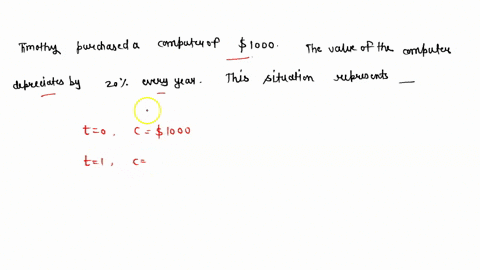 Timothy purchased a computer of $1000. The value of the computer
depreciates by 20% every year. This situation represents __
t=0, C = $1000
t=1, C=